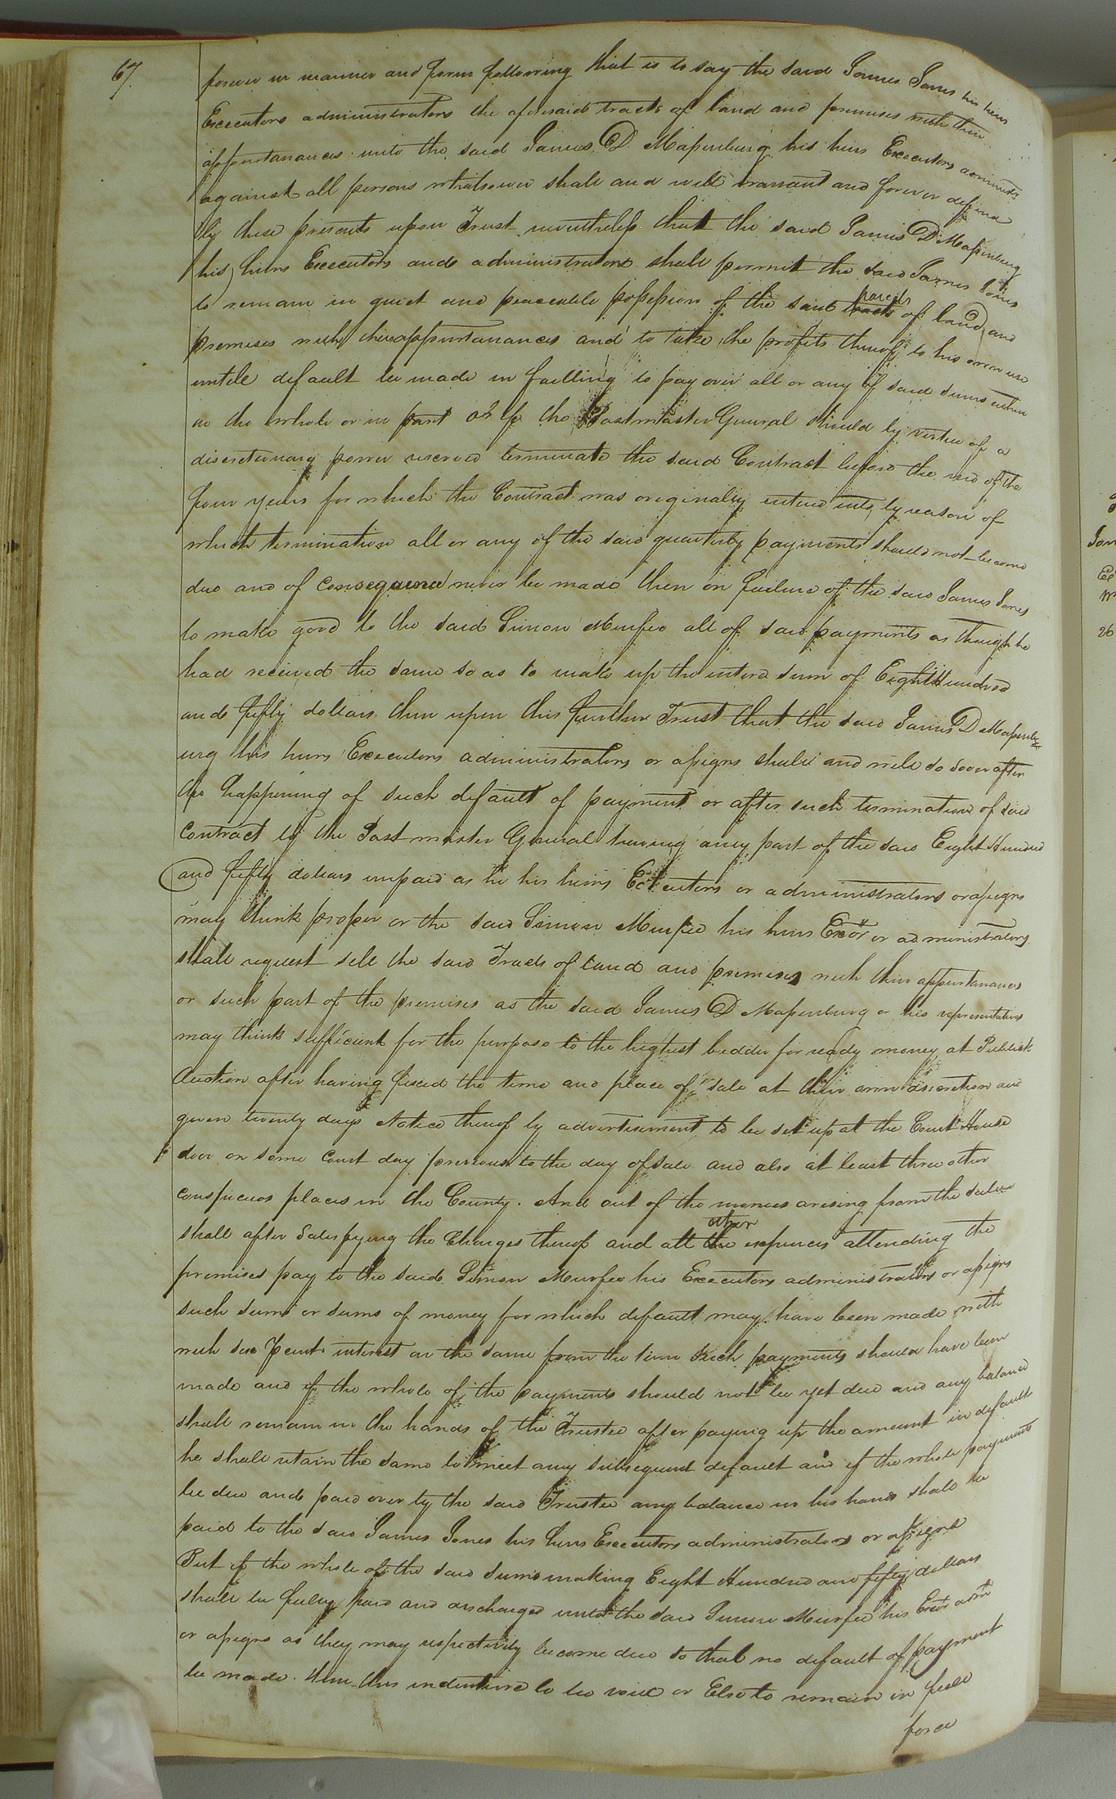 67.
forever in manner and form following that is to say the said James Jones his heirs
Executors administrators the aforesaid tracts of land and premises with their
appurtanances unto the said James D Massenburg his heirs Executors adminrs
against all persons whatsoever shall and will warrant and forever defend
by these presents upon Trust nevertheless that the said James D Massenburg
his heirs Executors and administrators shall permit the said James Jones
to remain in quiet and peaceable possession of the said tracts parcels of land and
premises with their appurtanances and to take the profits thereof to his own use
untill default be made in failling to pay over all or any of said sums either
in the whole or in part or if the Postmaster General should by virtue of a
discretionary power reserved terminate the said Contract before the end of the
four years for which the Contract was originally entered into by reason of
which termination all or any of the said quarterly payments should not become
due and of consequence never be made then on failure of the said James Jones
to make good to the said Simon Murfee all of said payments as though he
had received the same so as to make up the entire sum of Eight Hundred
and fifty dollars then upon this further Trust that the said James D Massenb-
urg his heirs Executors administrators or assigns shall and will so soon after
the happening of such default of payment or after such termination of said
Contract by the Post master General leaving any part of the said Eight Hundred
and fifty dollars unpaid as he his heirs Executors or administrators or assigns
may think proper or the said Simon Murfee his heirs Exors or administrators
shall request sell the said Tracts of land and premises with their appurtanances
or such part of the premises as the said James D Massenburg or his representatives
may think sufficient for the purpose to the highest bidder for ready money at Publick
Auction after having fixed the time and place of sale at their own discretion and
given twenty days Notice thereof by advertisement to be set up at the Court House
door on some Court day previous to the day of sale and also at least three other
conspicuos places in the County. And out of the monies arising from the sale
shall after satisfying the charges thereof and all the other expences attending the
premises pay to the said Simon Murfee his Executors administrators or assigns
such sum or sums of money for which default may have been made with
with six pCent interest on the same from the time such payments should have been
made and if the whole of the payments should not be yet due and any balance
shall remain in the hands of the Trustee after paying up the amount in default
he shall retain the same to meet any subsequent default and if the whole payments
be due and paid over by the said Trustee any balance in his hands shall be
paid to the said James Jones his heirs Executors administrators or assigns
But if the whole of the said sums making Eight Hundred and fifty dollars
shall be fully paid and discharged unto the said Simon Murfee his Exors admr
or assigns as they may respectively become due so that no default of payment
be made. then this indenture to be void or Else to remain in full
force